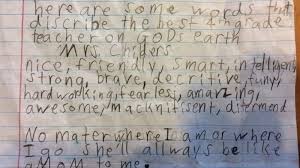 here are some words that
discribe the best 4 grade
teacher on GODs earth
Mrs. Childers
nice, friendly, smart, intelligent,
strong, brave, decritive, funy,
hardworking, fearless, amazing,
awesome, macknitisent, ditermend
No mater where I am or where
I go she'll allways be like
a MOM to me.